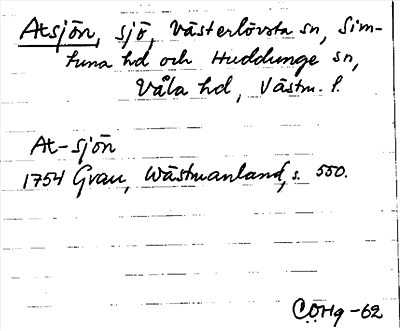 Atsjön, sjö, Västerlövsta sn, Sim-
tuna hd och Huddunge sn,
Våla hd, Västm. l.
At-sjön
1754 Grau, Wästmanland, s. 550.
C.O.Hg -62